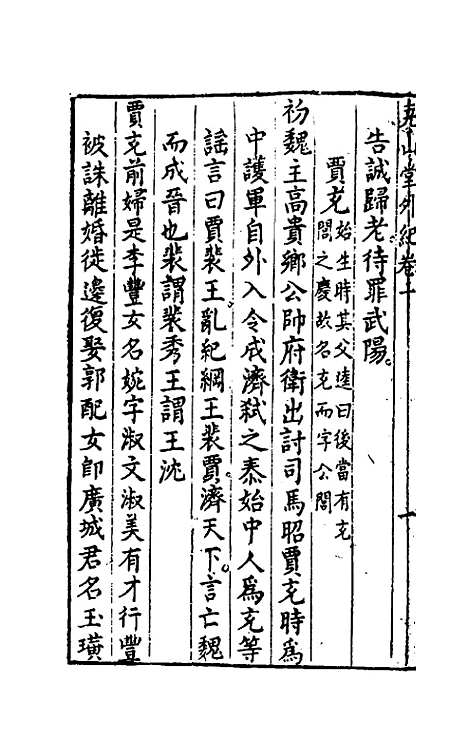 堯山堂外紀卷十
告誠歸老待罪武陽。
賈充始生時其父逵曰後當有充
閭之慶故名充而字公閭
初魏主高貴鄉公帥府衛出討司馬昭賈充時爲
中護軍自外入令成濟弒之泰始中人爲充等
謠言曰賈裴王亂紀綱王裴賈濟天下。言亡魏
而成晉也裴謂裴秀王謂王沈
賈充前婦是李豐女名婉字淑文淑美有才行豐
被誅離婚徙邊復娶郭配女卽廣城君名玉璜